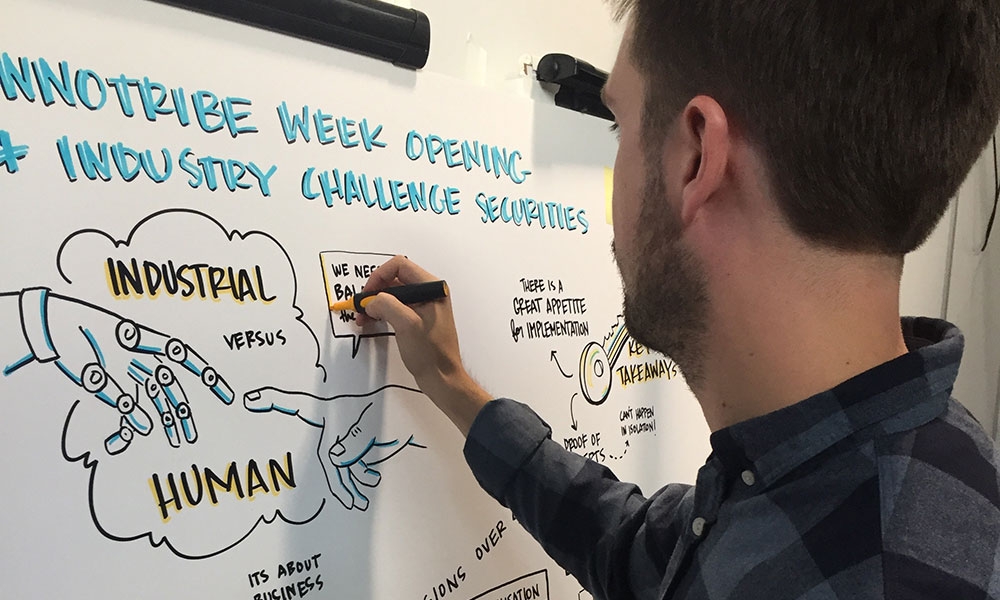 INNOTRIBE WEEK OPENING
+ INDUSTRY CHALLENGE SECURITIES
INDUSTRIAL
VERSUS
HUMAN
WE
the
THERE IS A
GREAT APPETITE
for IMPLEMENTATION
TAKEAWAYS
CAN'T HAPPEN
IN ISOLATION!
PROOF OF
ITS ABOUT
BUSINESS
OVER